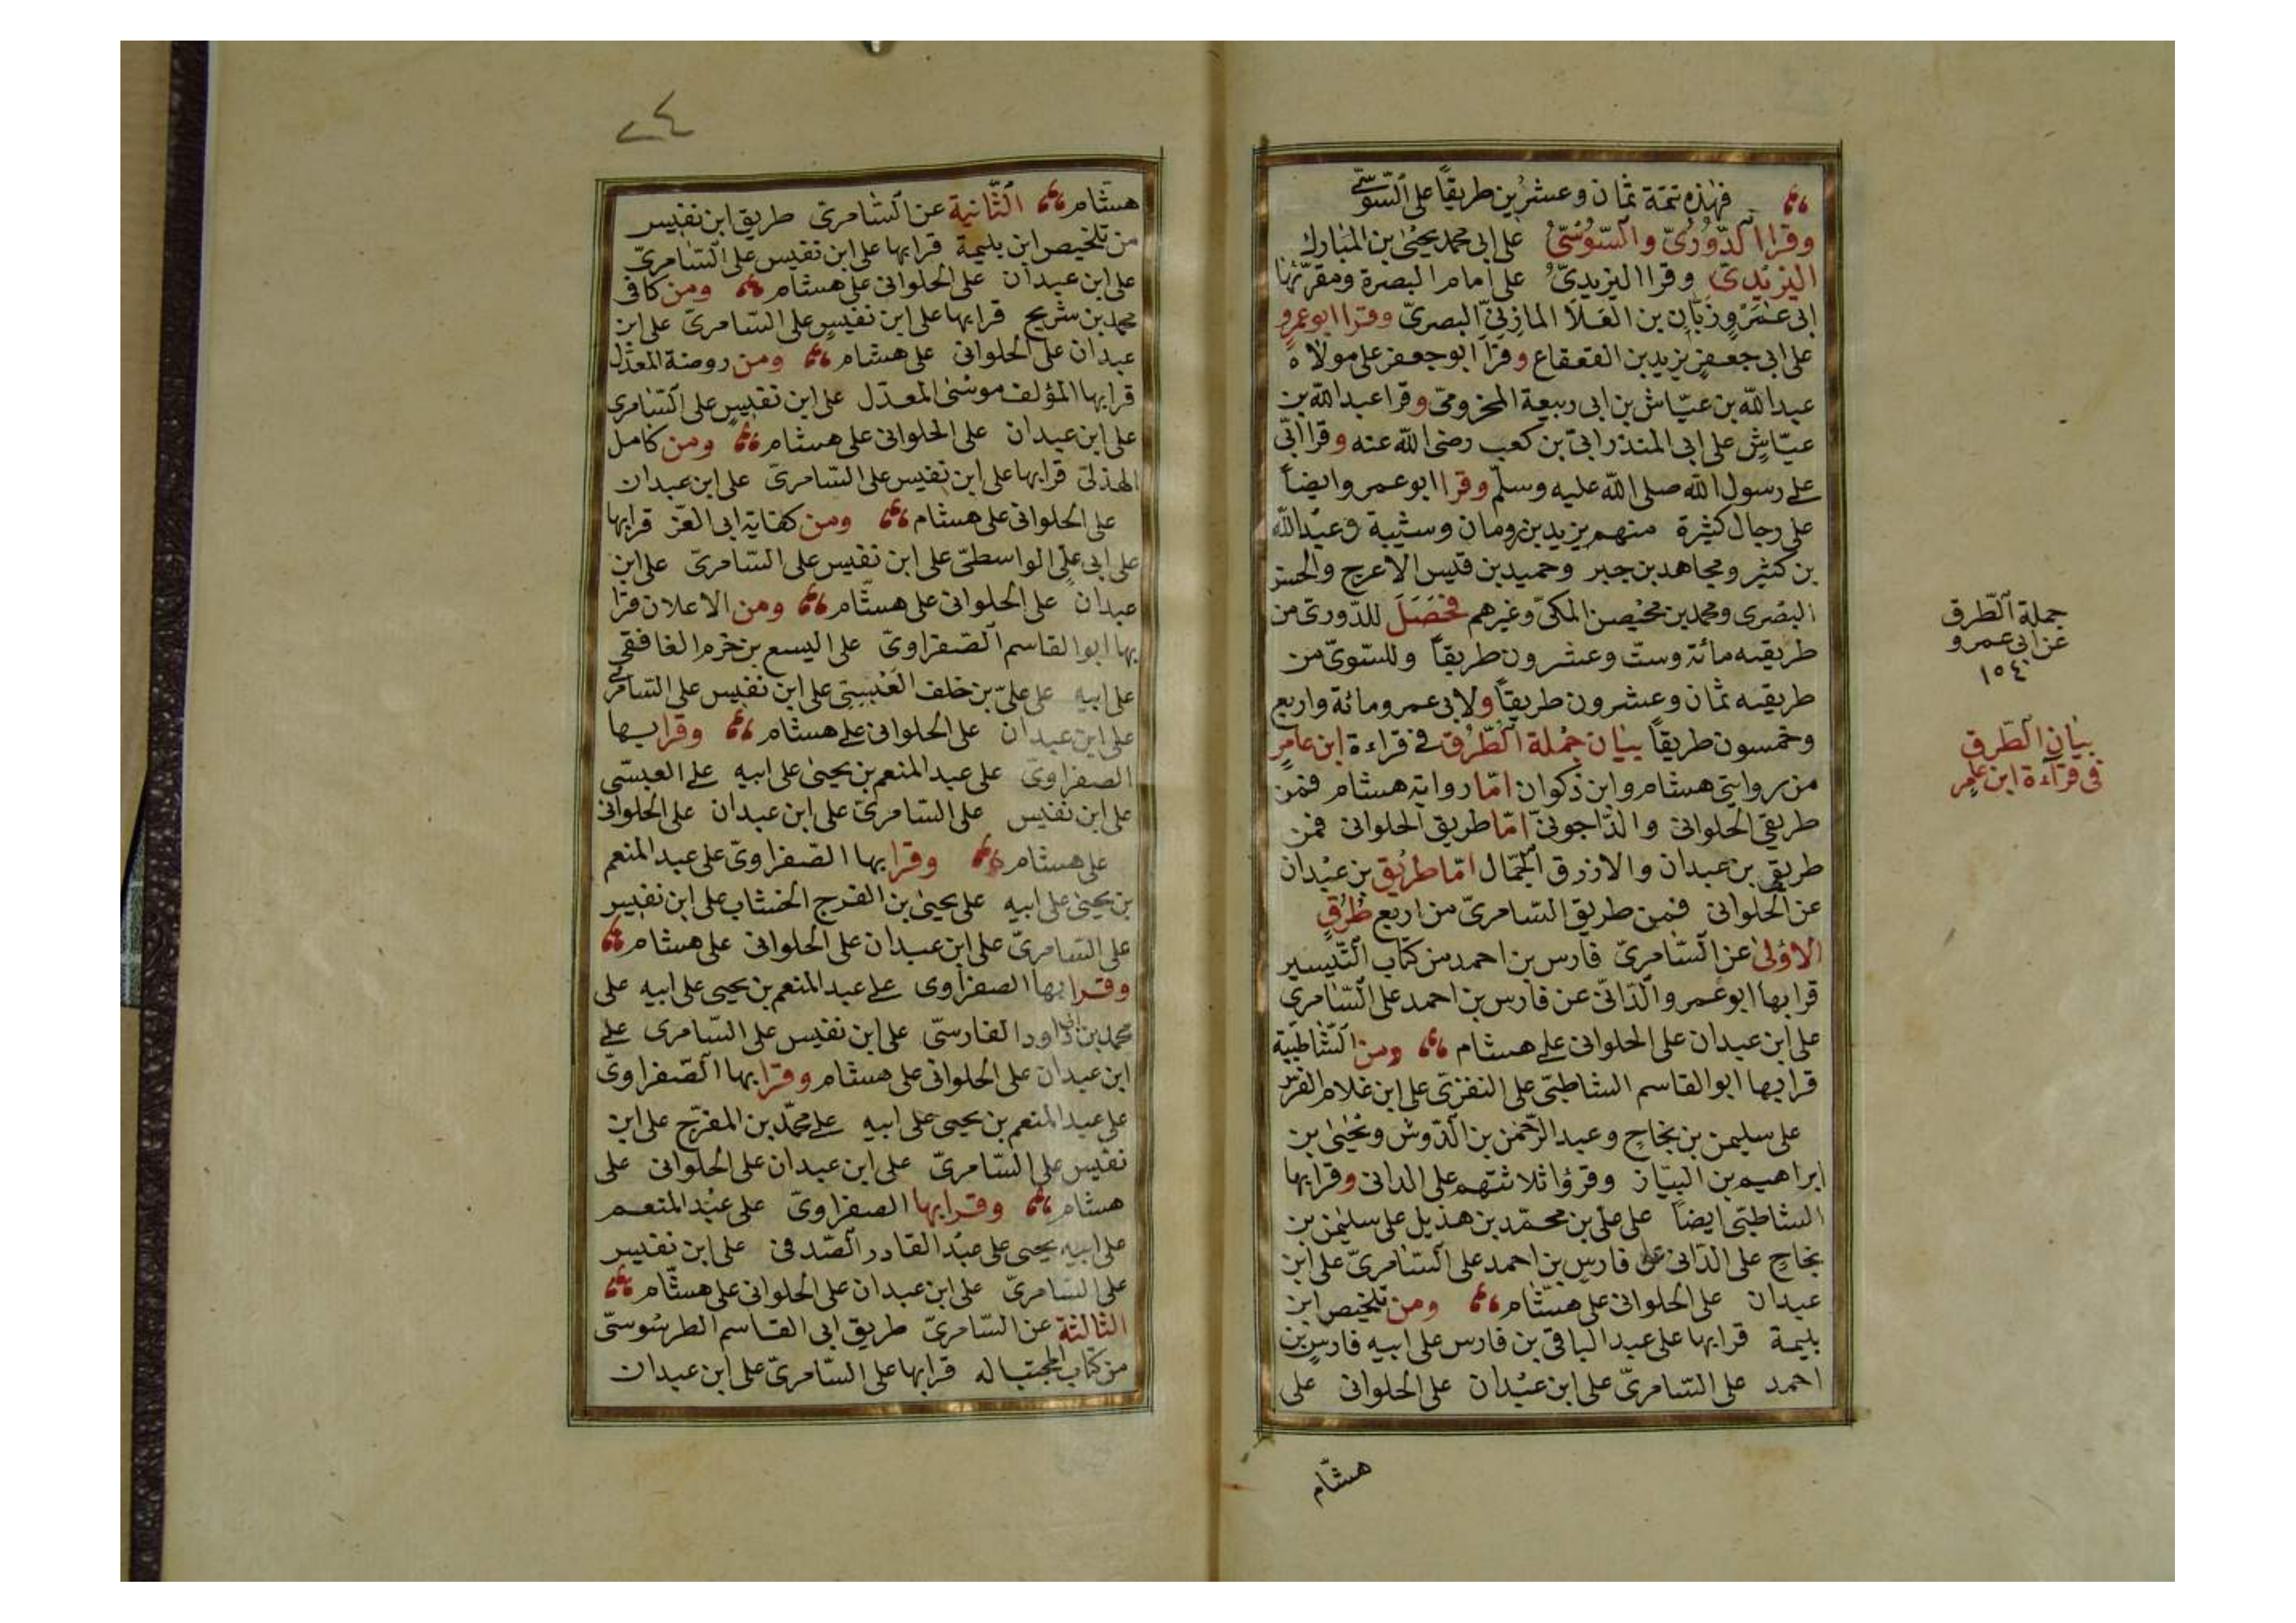 فهذه تتمة ثمان وعشرين طريقاً على السّوسّى
وقرا الدّورىّ والسّوسىّ على ابى محمد يحيى بن المبارك
اليزيدىّ وقرا اليزيدىّ على امام البصرة ومقرئها
ابى عَمْرٍو زبّان بن العلا المازنىّ البصرىّ وقرا ابو عمرو
على ابى جعفر يزيد بن القعقاع وقرا ابو جعفر على مولاه
عبد الله بن عيّاش بن ابى ربيعة المخزومىّ وقرا عبد الله بن
عيّاش على ابى المنذر ابىّ بن كعب رضى الله عنه وقرا ابىّ
على رسول الله صلى الله عليه وسلّم وقرا ابو عمرو ايضاً
على رجال كثيرة منهم يزيد بن رومان وشيبة وعبد الله
بن كثير ومجاهد بن جبر وحميد بن قيس الاعرج والحسن
البصرى ومحمد بن محيصن المكىّ وغيرهم فحَصَلَ للدّورىّ من
طريقيه مائة وستّ وعشرون طريقاً وللسّوسىّ من
طريقيه ثمان وعشرون طريقاً ولابى عمرو مائة واربع
وخمسون طريقاً بيان جُملة الطّرُق فى قراءة ابن عامرٍ
من روايتى هشام وابن ذكوان امّا رواية هشام فمن
طريقى الحلوانى والدّاجونىّ امّا طريق الحلوانى فمن
طريقى بن عبدان والازرق الجمّال امّا طريق بن عبدان
عن الحلوانى فمن طريق السّامرىّ من اربع طُرُقٍ
الاولى عن السّامرىّ فارس بن احمد من كتاب التّيسير
قرا بها ابو عمرو الدّانىّ عن فارس بن احمد على السّامرى
على ابن عبدان على الحلوانى على هشام ومن الشّاطبيّة
قرا بها ابو القاسم الشاطبىّ على النفزىّ على ابن غلام الفرس
على سليمن بن نجاح وعبد الرّحمن بن الدّوش ويحيى بن
ابراهيم بن البيّاز وقرؤا ثلاثتهم على الدانى وقرا بها
الشاطبىّ ايضاً على علىّ بن محمّد بن هذيل على سليمن بن
نجاح على الدّانى على فارس بن احمد على السّامرىّ على ابن
عبدان على الحلوانى على هشّام ومن تلخيص ابن
بليمة قرا بها على عبد الباقى بن فارس على ابيه فارس بن
احمد على السّامرىّ على ابن عبدان على الحلوانى على
هشّام
جملة الطّرق
عن ابى عمرو
١٥٤
بيان الطّرق
فى قراءة ابن عامر
٢٤
هشّام الثّانية عن السّامرىّ طريق ابن نفيس
من تلخيص ابن بليمة قرا بها على ابن نفيس على السّامرىّ
على ابن عبدان على الحلوانى على هشام ومن كافى
محمد بن شريح قرا بها على ابن نفيس على السّامرىّ على ابن
عبدان على الحلوانى على هشام ومن روضة المعدّل
قرا بها المؤلف موسى المعدّل على ابن نفيس على السّامرى
على ابن عبدان على الحلوانى على هشام ومن كامل
الهذلىّ قرا بها على ابن نفيس على السّامرىّ على ابن عبدان
على الحلوانى على هشام ومن كفاية ابى العزّ قرا بها
على ابى على الواسطىّ على ابن نفيس على السّامرىّ على ابن
عبدان على الحلوانى على هشّام ومن الاعلان قرا
بها ابو القاسم الصّفراوىّ على اليسع بن خزم الغافقى
على ابيه على علىّ بن خلف العَبْسِىّ على ابن نفيس على السّامرى
على ابن عبدان على الحلوانى على هشام وقرا بها
الصفراوىّ على عبد المنعم بن يحيى على ابيه على العبسّى
على ابن نفيس على السّامرىّ على ابن عبدان على الحلوانى
على هشام وقرا بها الصّفراوىّ على عبد المنعم
بن يحيى على ابيه على يحيى بن الفرج الخشاب على ابن نفيس
على السّامرىّ على ابن عبدان على الحلوانى على هشام
وقرا بها الصفراوى على عبد المنعم بن يحيى على ابيه على
محمد بن ابى داود الفارسىّ على ابن نفيس على السّامرى على
ابن عبدان على الحلوانى على هشام وقرا بها الصّفراوىّ
على عبد المنعم بن يحيى على ابيه على محمّد بن المفرّج على ابن
نفيس على السّامرىّ على ابن عبدان على الحلوانى على
هشام وقرا بها الصفراوىّ على عبْد المنعم
على ابيه يحيى على عبْد القادر الصّدفى على ابن نفيس
على السّامرىّ على ابن عبدان على الحلوانى على هشّام
الثالثة عن السّامرىّ طريق ابى القاسم الطرسُوسىّ
من كتاب المجتبا له قرا بها على السّامرىّ على ابن عبدان